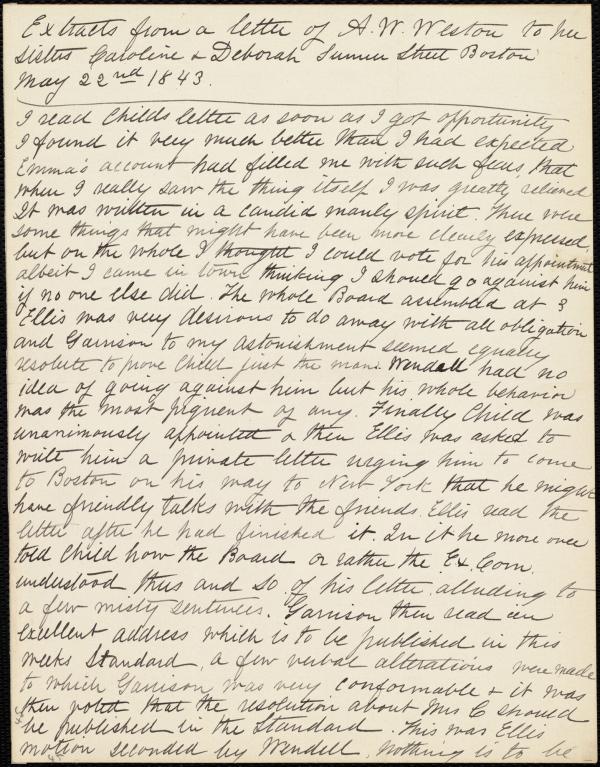 Extracts from a letter of A. W. Weston to her
sisters Caroline & Deborah Sumner Street Boston
May 22nd 1843.
I read Childs letter as soon as I got opportunity
I found it very much better than I had expected
Emma's account had filled me with such fears that
when I really saw the thing itself I was greatly relieved
It was written in a candid manly spirit. There were
some things that might have been more clearly expressed,
but on the whole I thought I could vote for his appointment
albeit I came in town thinking I should go against him
if no one else did. The whole Board assembled at 3
Ellis was very desirous to do away with all obligation
and Garrison to my astonishment seemed equally
resolute to prove Child just the man. Wendell had no
idea of going against him but his whole behavior
was the most piquent of any. Finally Child was
unanimously appointed & then Ellis was asked to
write him a private letter urging him to come
to Boston on his way to New York that he might
have friendly talks with the friends. Ellis read the
letter after he had finished it. In it he more over
told Child how the Board or rather the Ex. Com.
understood thus and so of his letter alluding to
a few misty sentences. Garrison then read an
excellent address which is to be published in this
weeks Standard, a few verbal alterations were made
to which Garrison was very conformable & it was
then voted that the resolution about Mrs C should
be published in the Standard. This was Ellis
motion seconded by Wendell. Nothing is to be